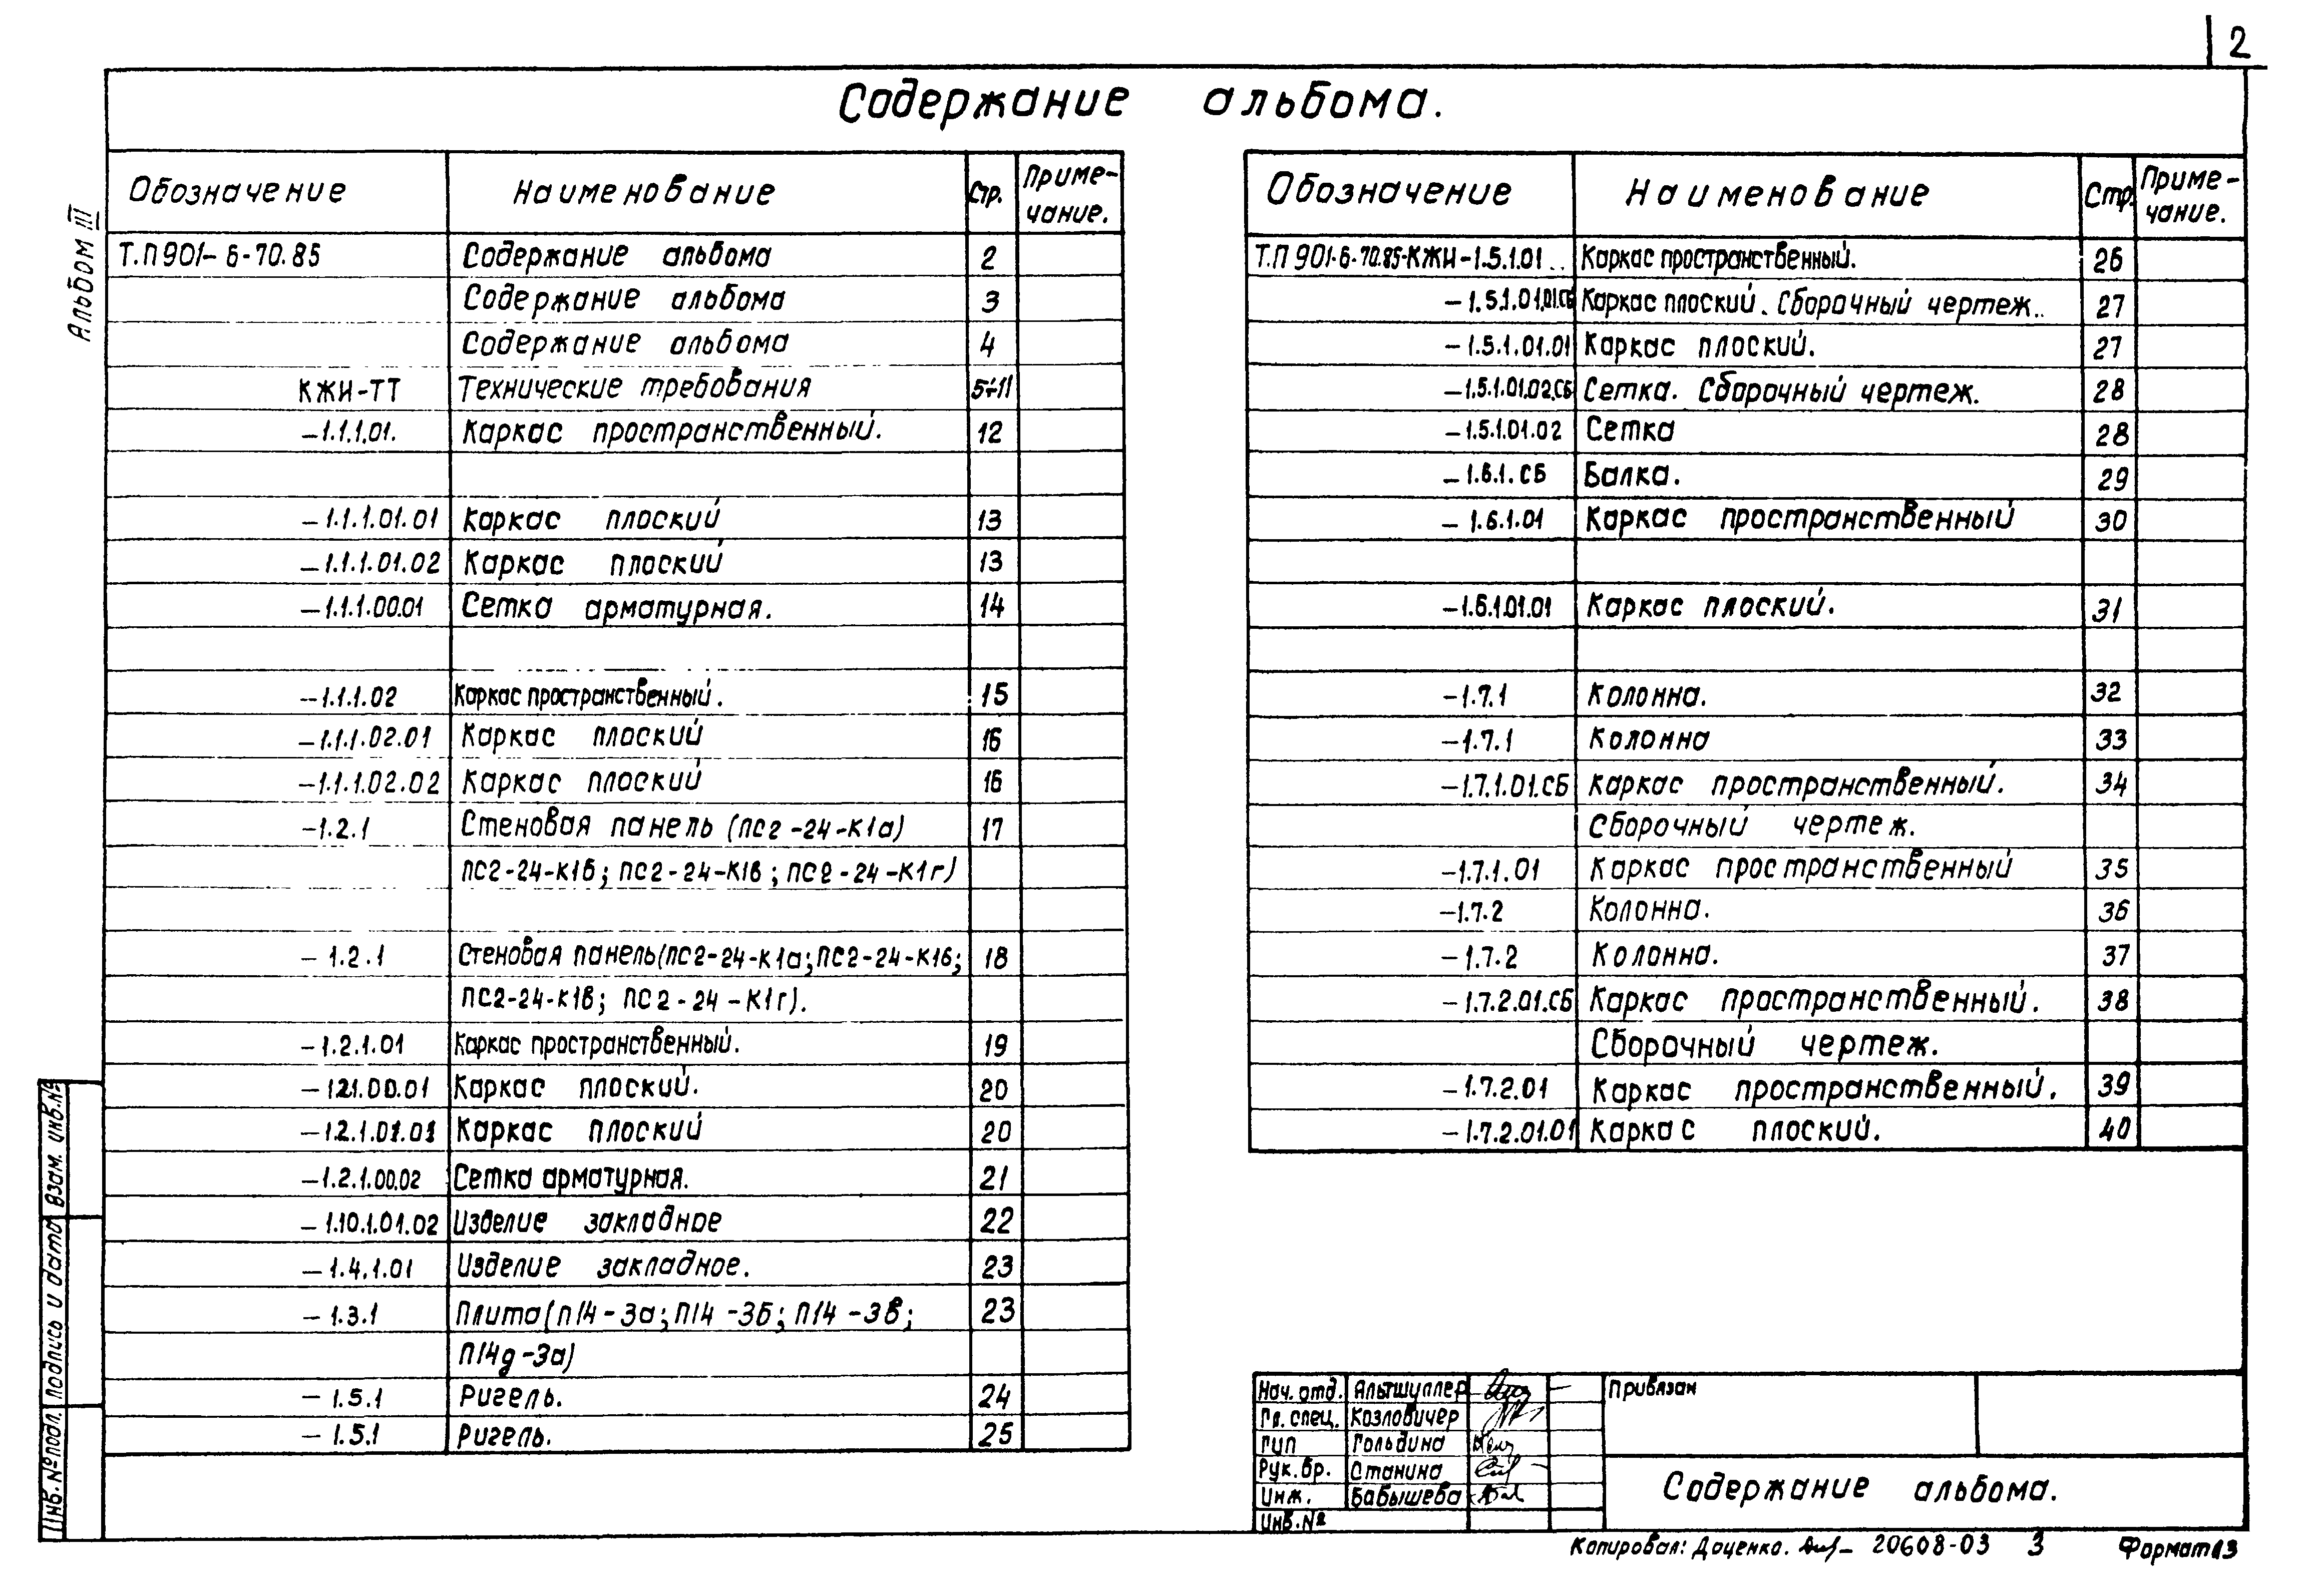 2
Содержание альбома.
Альбом III
Обозначение Наименование Стр. Приме-
чание.
Т.П 901-6-70.85 Содержание альбома 2
Содержание альбома 3
Содержание альбома 4
КЖИ-ТТ Технические требования 5÷11
-1.1.1.01. Каркас пространственный. 12
-1.1.1.01.01 Каркас плоский 13
-1.1.1.01.02 Каркас плоский 13
-1.1.1.00.01 Сетка арматурная. 14
-1.1.1.02 Каркас пространственный. 15
-1.1.1.02.01 Каркас плоский 16
-1.1.1.02.02 Каркас плоский 16
-1.2.1 Стеновая панель (ПС2-24-К1а) 17
ПС2-24-К1б; ПС2-24-К1в; ПС2-24-К1г)
-1.2.1 Стеновая панель(ПС2-24-К1а;ПС2-24-К1б; 18
ПС2-24-К1в; ПС2-24-К1г).
-1.2.1.01 Каркас пространственный. 19
-1.2.1.00.01 Каркас плоский. 20
-1.2.1.01.01 Каркас плоский 20
-1.2.1.00.02 Сетка арматурная. 21
-1.10.1.01.02 Изделие закладное 22
-1.4.1.01 Изделие закладное. 23
-1.3.1 Плита(П14-3а;П14-3б; П14-3в; 23
П14д-3а)
-1.5.1 Ригель. 24
-1.5.1 Ригель. 25
Обозначение Наименование Стр. Приме-
чание.
Т.П 901-6-70.85-КЖИ-1.5.1.01 .. Каркас пространственный. 26
-1.5.1.01.01.СБ Каркас плоский. Сборочный чертеж.. 27
-1.5.1.01.01 Каркас плоский. 27
-1.5.1.01.02.СБ Сетка. Сборочный чертеж. 28
-1.5.1.01.02 Сетка 28
-1.6.1.СБ Балка. 29
-1.6.1.01 Каркас пространственный 30
-1.6.1.01.01 Каркас плоский. 31
-1.7.1 Колонна. 32
-1.7.1 Колонна 33
-1.7.1.01.СБ Каркас пространственный. 34
Сборочный чертеж.
-1.7.1.01 Каркас пространственный 35
-1.7.2 Колонна. 36
-1.7.2 Колонна. 37
-1.7.2.01.СБ Каркас пространственный. 38
Сборочный чертеж.
-1.7.2.01 Каркас пространственный. 39
-1.7.2.01.01 Каркас плоский. 40
Взам. инв.№
Подпись и дата
Инв. №подл.
Нач. отд. Альтшуллер
Гл. спец. Козловичер
Гип Гольдина
Рук. бр. Станина
Инж. Бабышева
Инв. №
Привязан
Содержание альбома.
Копировал: Доценко. 20608-03 3 Формат 13